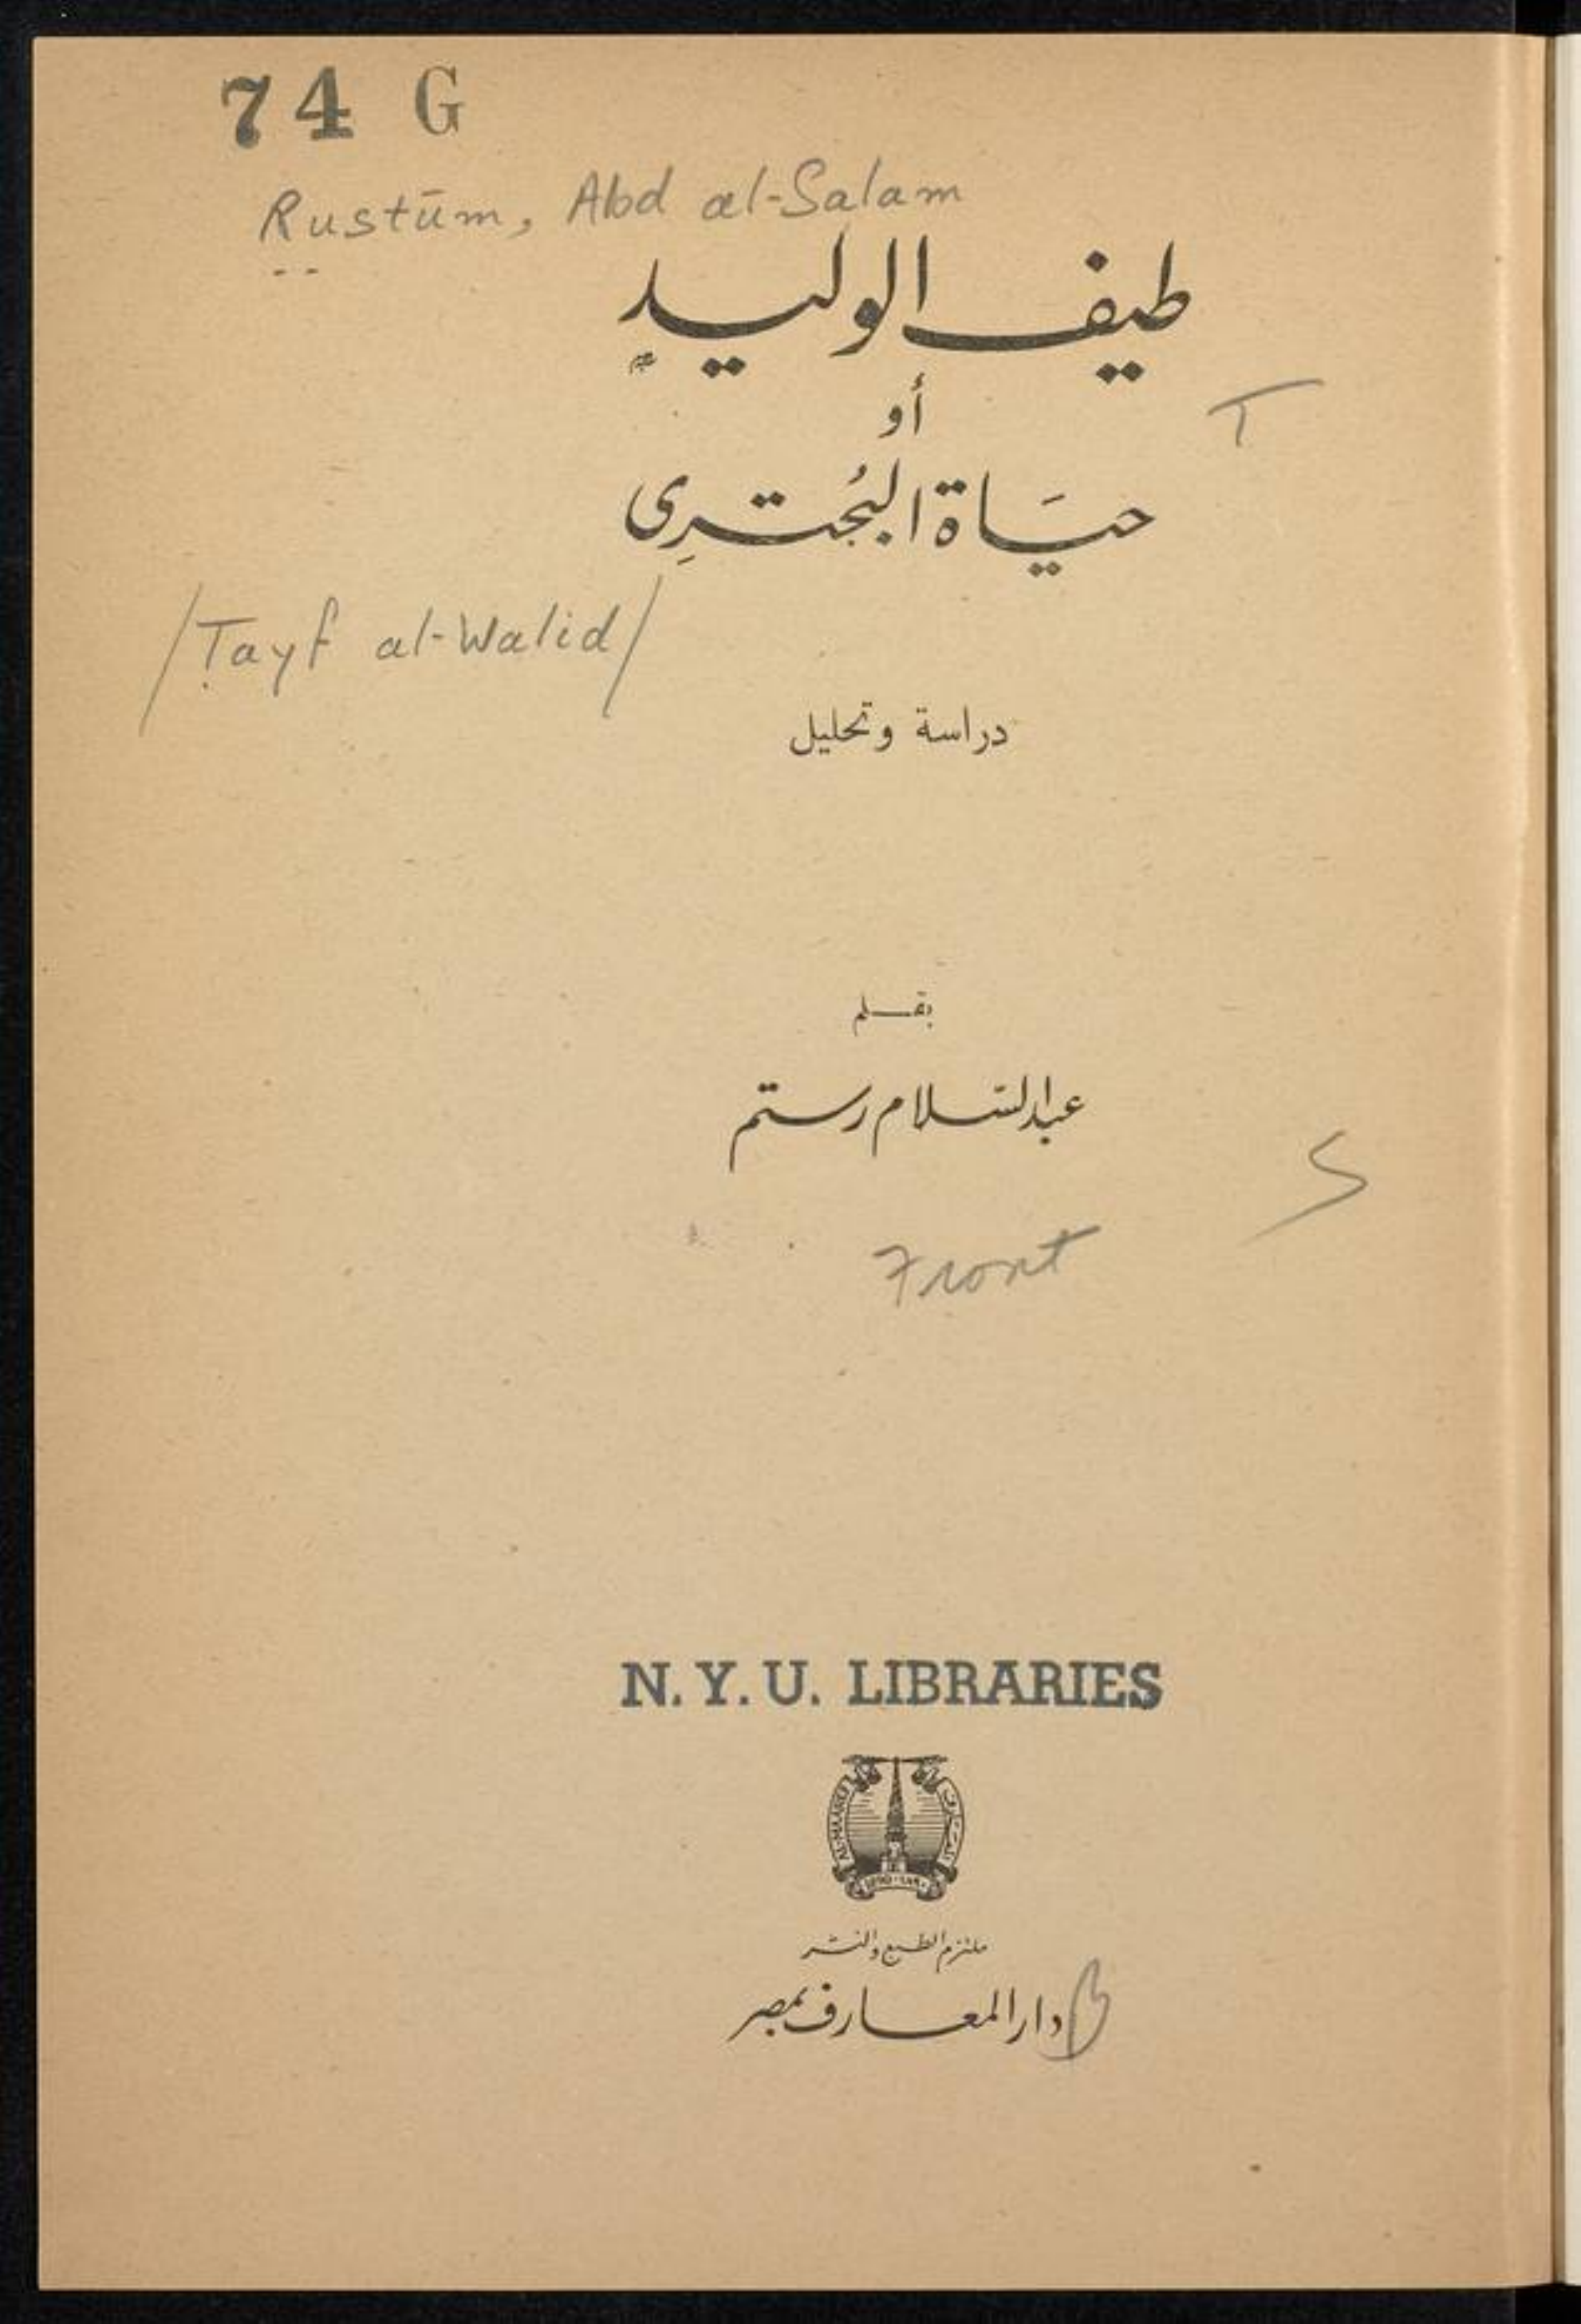 74 G
Rustūm, Abd al-Salam
طيف الوليد
أو
حيَاة البُحتِرى
/Ṭayf al-Walid/
T
دراسة وتحليل
بقلم
عبد السّلام رستم
S
Front
N. Y. U. LIBRARIES
AL-MAAREF
المعارف
1890 - ١٨٩٠
ملتزم الطبع والنشر
دار المعارف بمصر